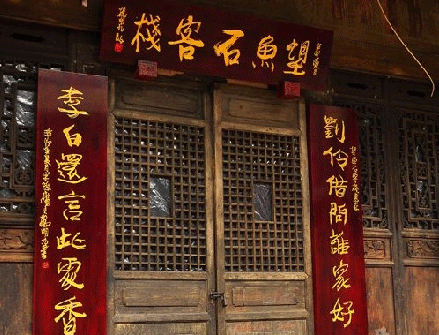 望魚石客棧
劉伶借問誰家好
李白還言此處香